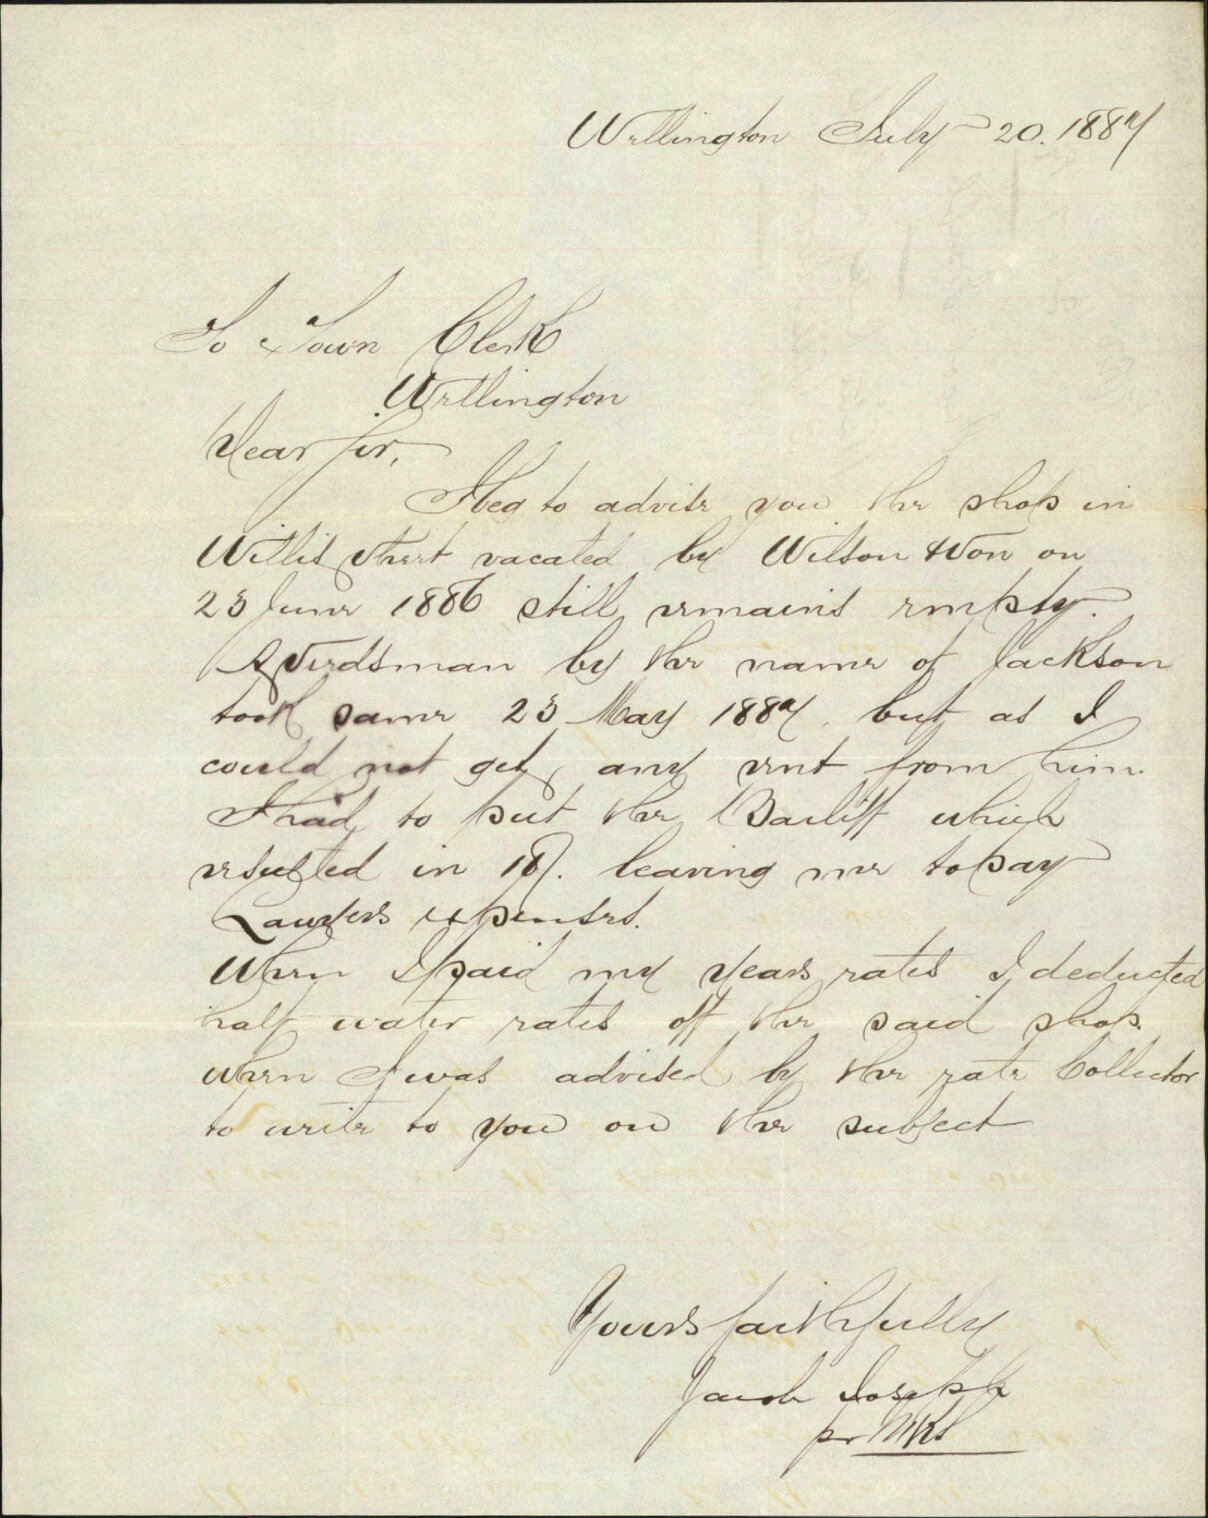 Wellington July 20. 1887
To Town Clerk
Wellington
Dear Sir,
I beg to advise you the shop in
Willis Street vacated by Wilson & Son on
23 June 1886 still remains empty.
A Seedsman by the name of Jackson
took same 23 May 1887, but as I
could not get any rent from him
I had to put the Bailiff which
resulted in leaving me to pay
Lawyers expenses.
When I paid my years rates I deducted
half water rates off the said shop.
when I was advised by the rate Collector
to write to you on the subject
Yours faithfully
Jacob Joseph
pr